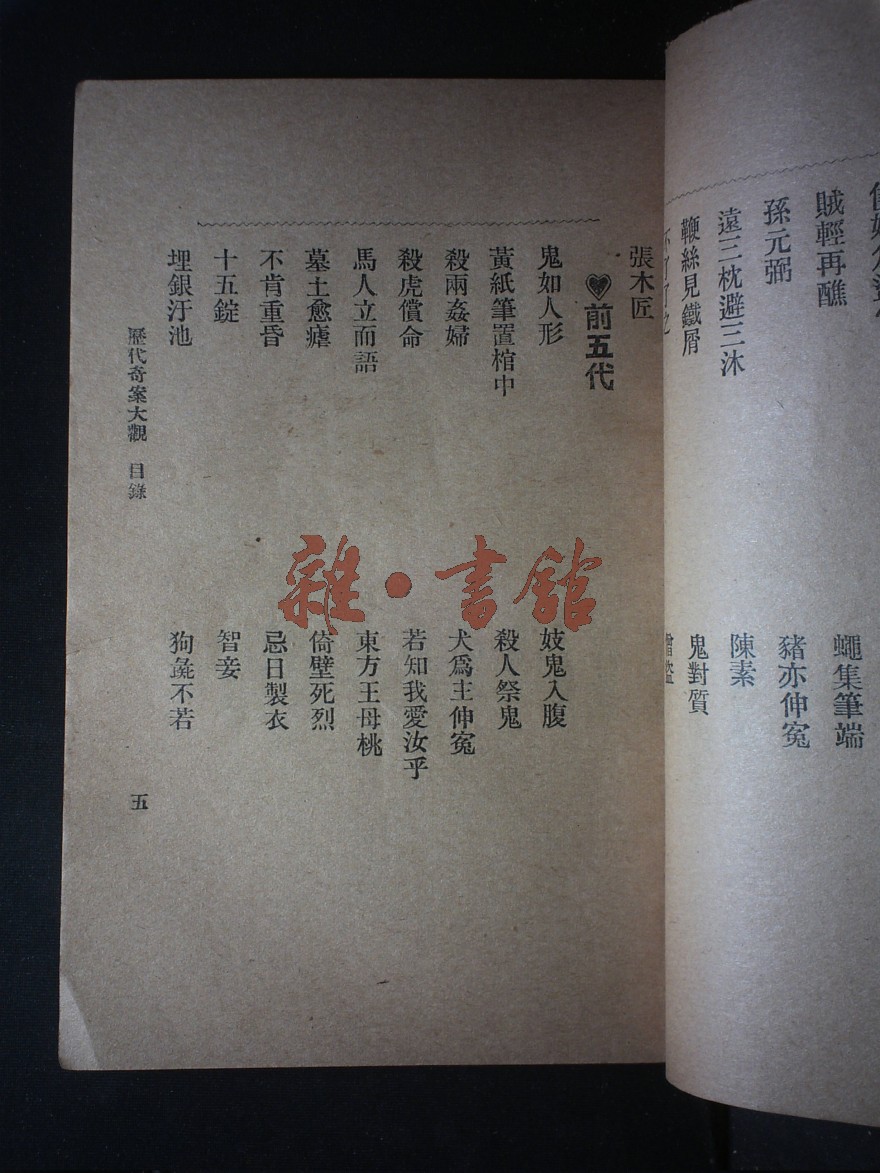 賊輕再醮
蠅集筆端
孫元弼
豬亦伸冤
遠三枕避三沐
陳素
鞭絲見鐵屑
鬼對質
張木匠
前五代
鬼如人形
妓鬼入腹
黃紙筆置棺中
殺人祭鬼
殺兩姦婦
犬爲主伸寃
殺虎償命
若知我愛汝乎
馬人立而語
東方王母桃
墓土愈瘧
倚壁死烈
不肯重昏
忌日製衣
十五錠
智妾
埋銀汙池
狗彘不若
歷代奇案大觀 目錄
五
雜·書館